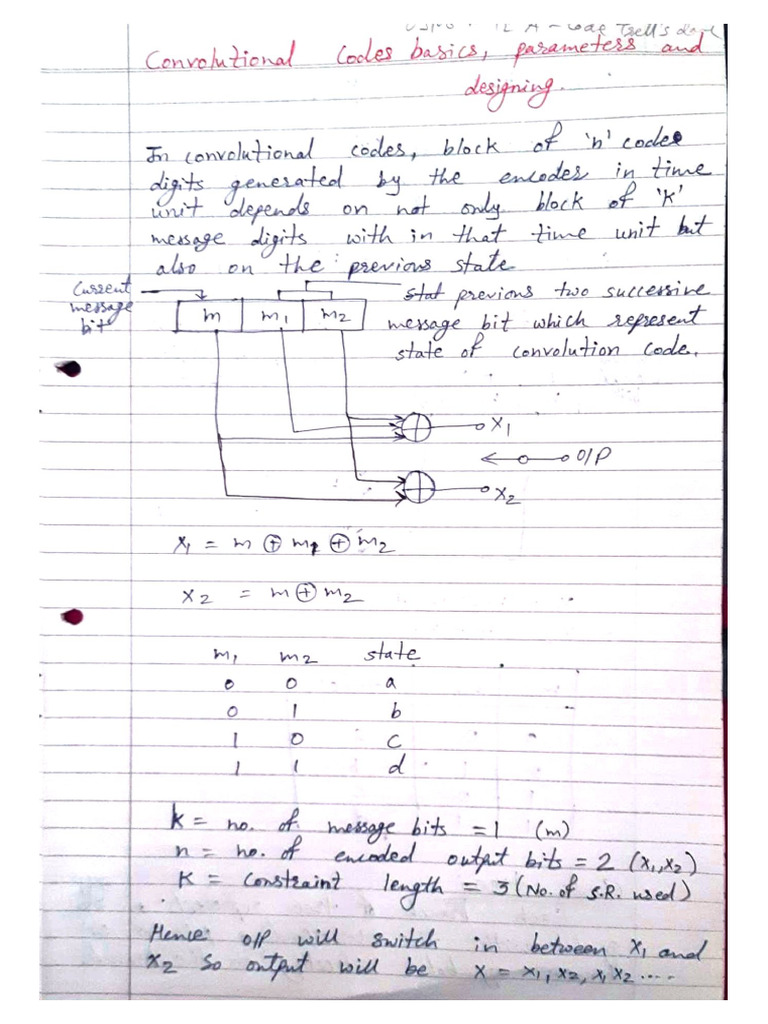 Convolutional Codes basics, parameters and
designing.
In convolutional codes, block of 'n' codes
digits generated by the encoder in time
unit depends on not only block of 'k'
message digits with in that time unit but
also on the previous state
Current
message
bit
m m1 m2
stat previous two successive
message bit which represent
state of convolution code.
X1
O/P
X2
X1 = m ⊕ m1 ⊕ m2
X2 = m ⊕ m2
m1 m2 state
0 0 a
0 1 b
1 0 c
1 1 d
k = no. of message bits = 1 (m)
n = no. of encoded output bits = 2 (X1, X2)
K = constraint length = 3 (No. of S.R. used)
Hence O/P will switch in between X1 and
X2 So output will be X = X1, X2, X1 X2 ....